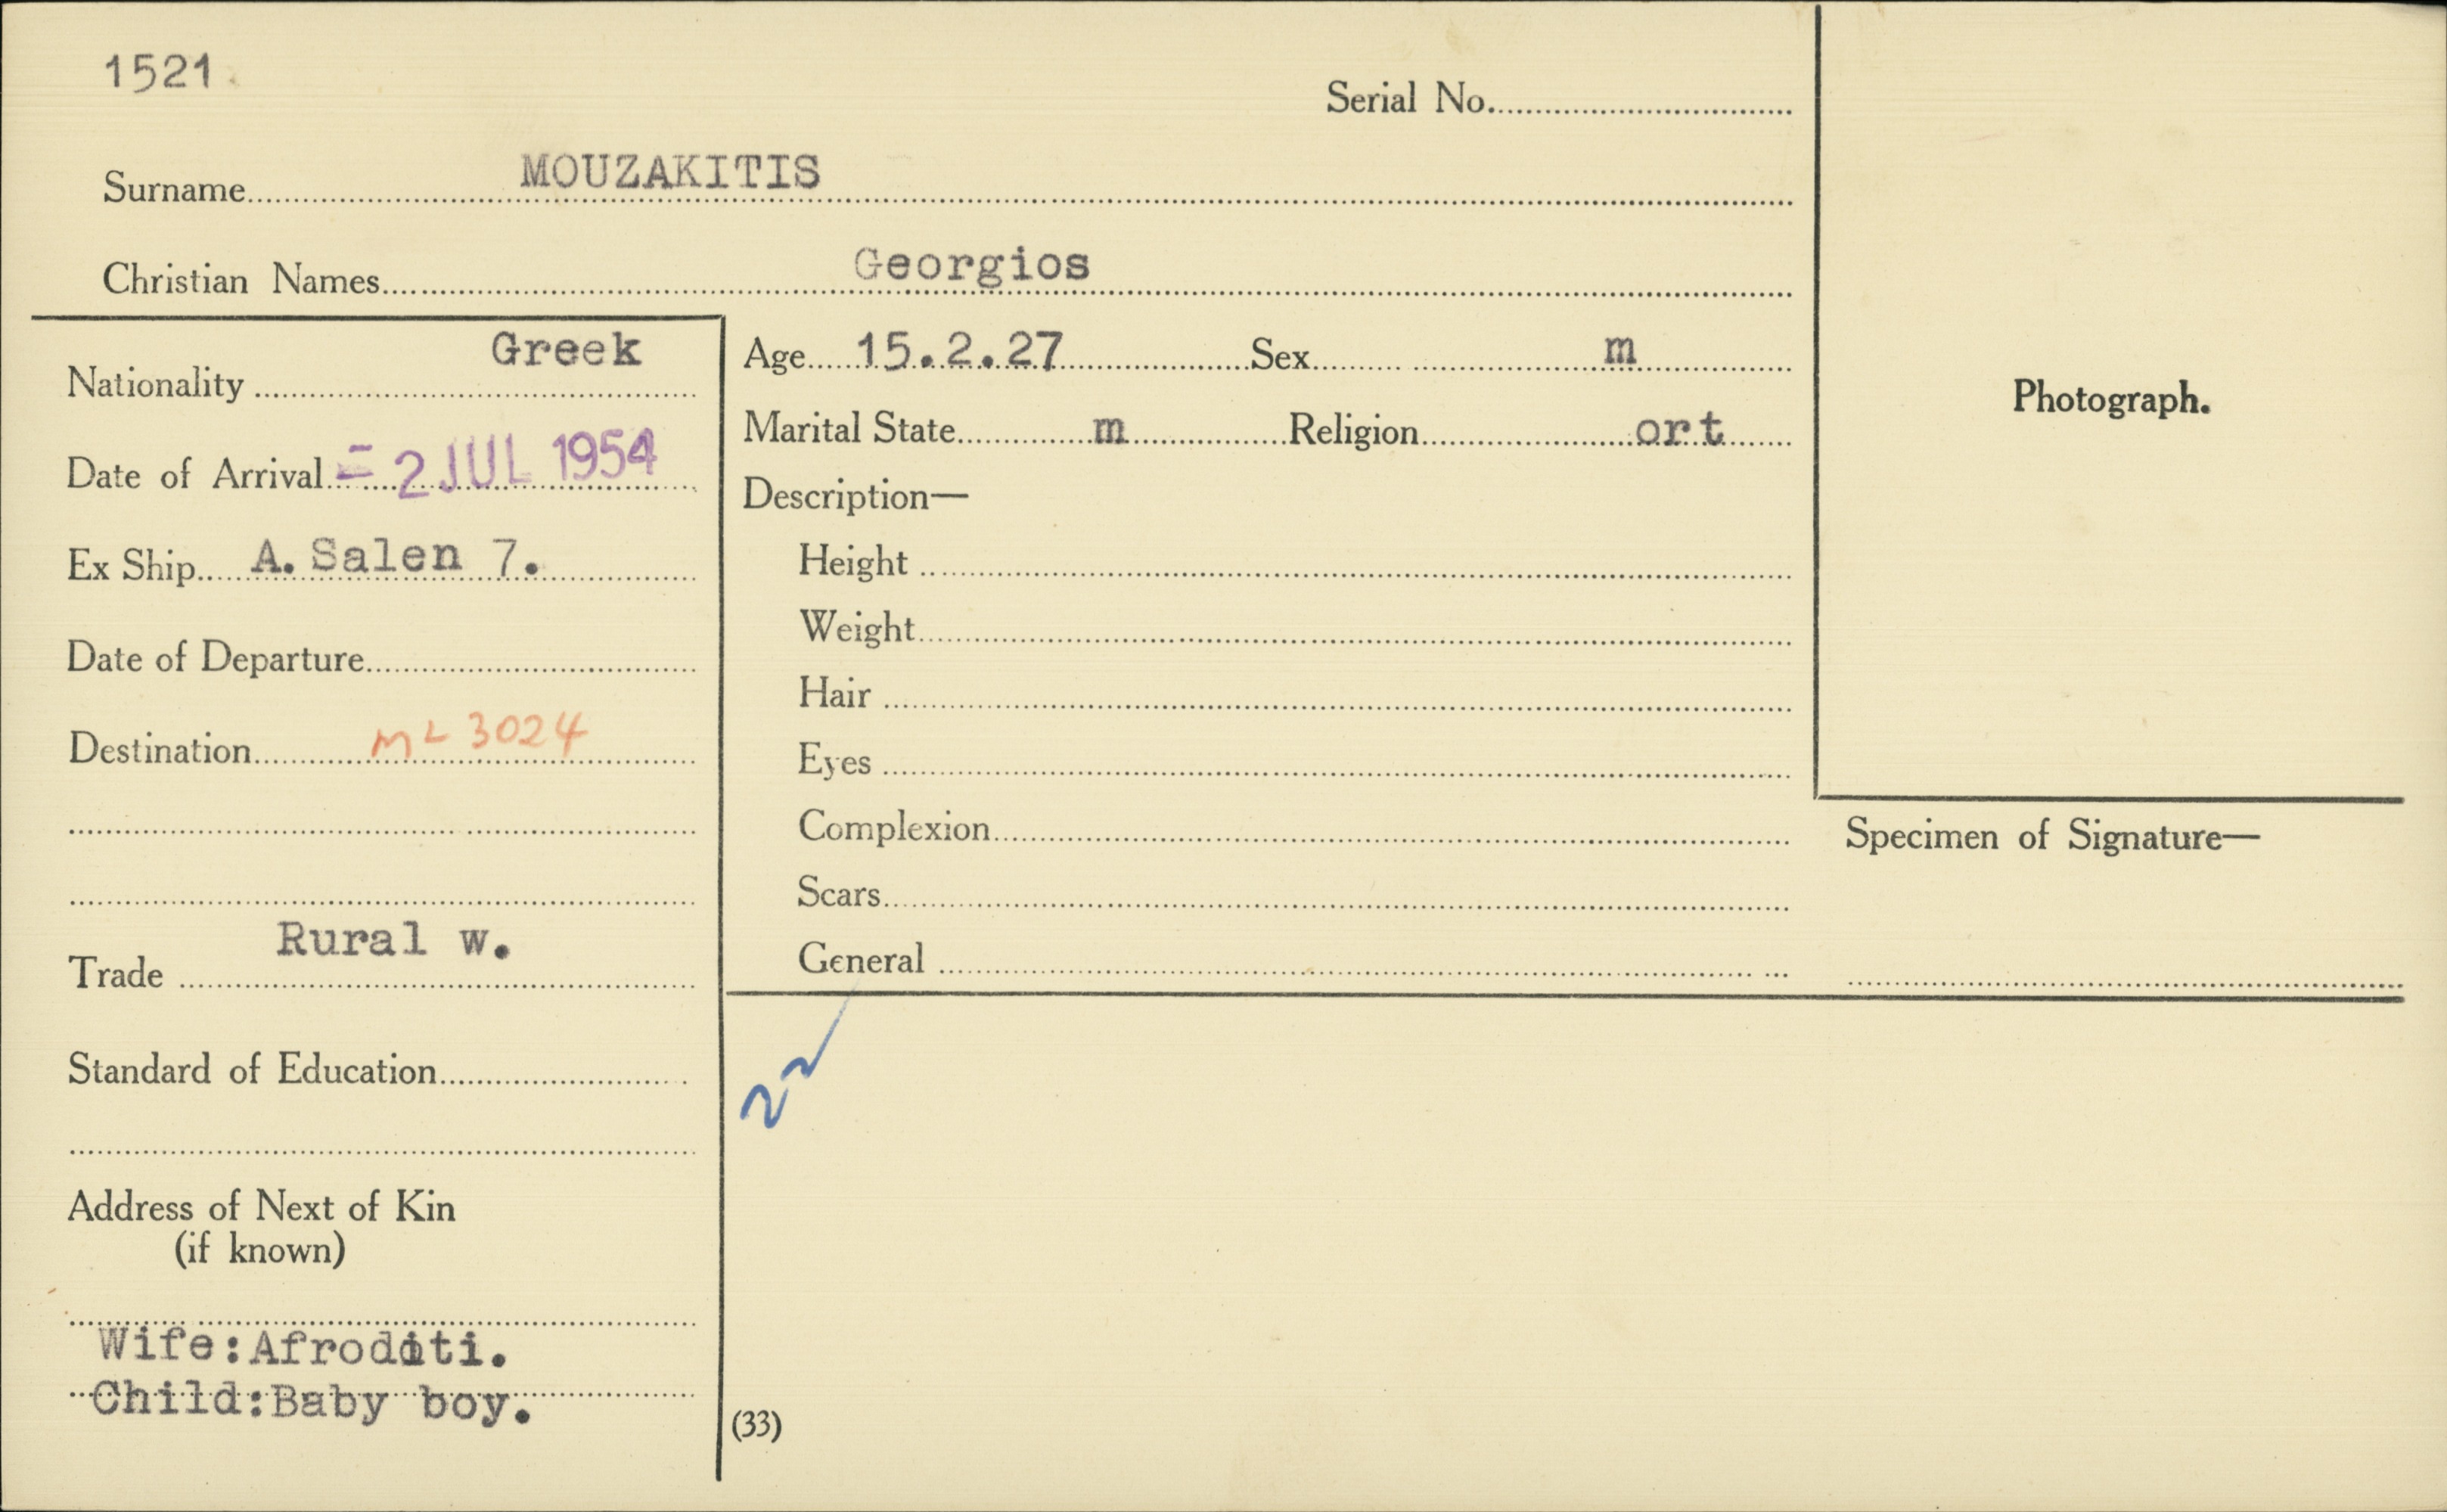 1521
Serial No.
Surname MOUZAKITIS
Christian Names Georgios
Nationality Greek
Date of Arrival = 2 JUL 1954
Ex Ship A. Salen 7.
Date of Departure
Destination ML 3024
Trade Rural w.
Standard of Education
Address of Next of Kin
(if known)
Wife:Afroditi.
Child:Baby boy.
Age 15.2.27 Sex m
Marital State m Religion ort
Description—
Height
Weight
Hair
Eyes
Complexion
Scars
General
(33)
Photograph.
Specimen of Signature—